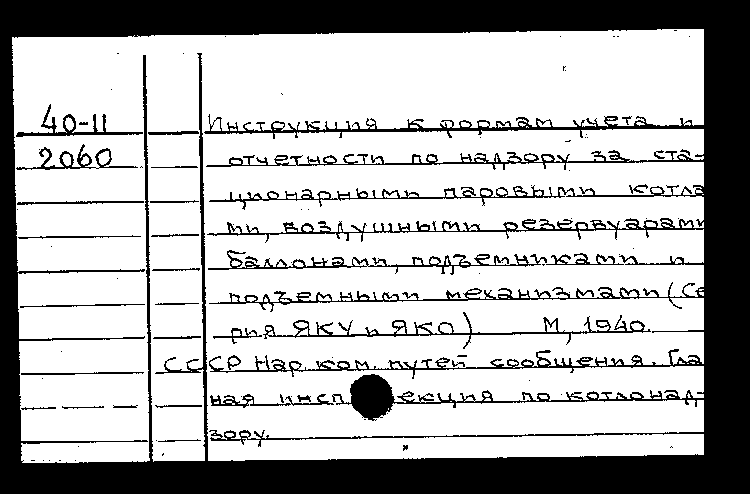 40-II Инструкция к формам учета и
2060 отчетности по надзору за ста-
ционарными паровыми котла
ми, воздушными резервуарами
баллонами, подъемниками и
подъемными механизмами (Се
рия ЯКУ и ЯКО) М, 1940.
СССР Нар. ком. путей сообщения. Гла
ная инспекция по котлонад-
зору.